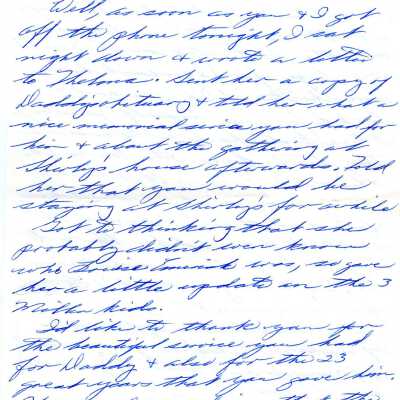 Well, as soon as you & I got
off the phone tonight, I sat
right down & wrote a letter
to Thelma. Sent her a copy of
Daddy's obituary & told her what a
nice memorial service you had for
him & about the gathering at
Shirley's house afterwards. Told
her that you would be
staying at Shirly's for awhile
Got to thinking that she
probably didn't even know
who Louise was, so gave
her a little update on the 3
Miller kids.
I'd like to thank you for
the beautiful service you had
for Daddy & also for the 23
great years that you gave him.